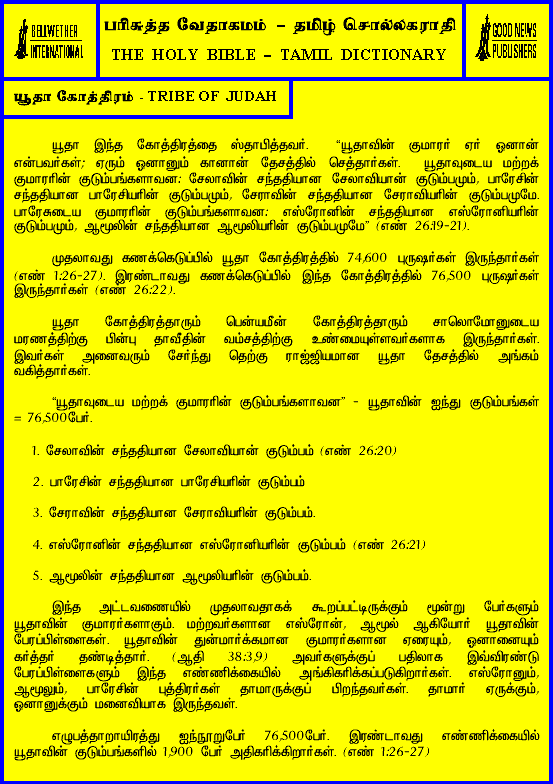 BELLWETHER
INTERNATIONAL
பரிசுத்த வேதாகமம் – தமிழ் சொல்லகராதி
THE HOLY BIBLE – TAMIL DICTIONARY
GOOD NEWS
PUBLISHERS
யூதா கோத்திரம் - TRIBE OF JUDAH
யூதா இந்த கோத்திரத்தை ஸ்தாபித்தவர். “யூதாவின் குமாரர் ஏர் ஓனான்
என்பவர்கள்; ஏரும் ஓனானும் கானான் தேசத்தில் செத்தார்கள். யூதாவுடைய மற்றக்
குமாரரின் குடும்பங்களாவன: சேலாவின் சந்ததியான சேலாவியான் குடும்பமும், பாரேசின்
சந்ததியான பாரேசியரின் குடும்பமும், சேராவின் சந்ததியான சேராவியரின் குடும்பமுமே.
பாரேசுடைய குமாரரின் குடும்பங்களாவன: எஸ்ரோனின் சந்ததியான எஸ்ரோனியரின்
குடும்பமும், ஆமூலின் சந்ததியான ஆமூலியரின் குடும்பமுமே” (எண் 26:19-21).
முதலாவது கணக்கெடுப்பில் யூதா கோத்திரத்தில் 74,600 புருஷர்கள் இருந்தார்கள்
(எண் 1:26-27). இரண்டாவது கணக்கெடுப்பில் இந்த கோத்திரத்தில் 76,500 புருஷர்கள்
இருந்தார்கள் (எண் 26:22).
யூதா கோத்திரத்தாரும் பென்யமீன் கோத்திரத்தாரும் சாலொமோனுடைய
மரணத்திற்கு பின்பு தாவீதின் வம்சத்திற்கு உண்மையுள்ளவர்களாக இருந்தார்கள்.
இவர்கள் அனைவரும் சேர்ந்து தெற்கு ராஜ்ஜியமான யூதா தேசத்தில் அங்கம்
வகித்தார்கள்.
“யூதாவுடைய மற்றக் குமாரரின் குடும்பங்களாவன” – யூதாவின் ஐந்து குடும்பங்கள்
= 76,500பேர்.
1. சேலாவின் சந்ததியான சேலாவியான் குடும்பம் (எண் 26:20)
2. பாரேசின் சந்ததியான பாரேசியரின் குடும்பம்
3. சேராவின் சந்ததியான சேராவியரின் குடும்பம்.
4. எஸ்ரோனின் சந்ததியான எஸ்ரோனியரின் குடும்பம் (எண் 26:21)
5. ஆமூலின் சந்ததியான ஆமூலியரின் குடும்பம்.
இந்த அட்டவணையில் முதலாவதாகக் கூறப்பட்டிருக்கும் மூன்று பேர்களும்
யூதாவின் குமாரர்களாகும். மற்றவர்களான எஸ்ரோன், ஆமூல் ஆகியோர் யூதாவின்
பேரப்பிள்ளைகள். யூதாவின் துன்மார்க்கமான குமாரர்களான ஏரையும், ஓனானையும்
கர்த்தர் தண்டித்தார். (ஆதி 38:3,9) அவர்களுக்குப் பதிலாக இவ்விரண்டு
பேரப்பிள்ளைகளும் இந்த எண்ணிக்கையில் அங்கிகரிக்கப்படுகிறார்கள். எஸ்ரோனும்,
ஆமூலும், பாரேசின் புத்திரர்கள் தாமாருக்குப் பிறந்தவர்கள். தாமார் ஏருக்கும்,
ஓனானுக்கும் மனைவியாக இருந்தவள்.
எழுபத்தாறாயிரத்து ஐந்நூறுபேர் 76,500பேர். இரண்டாவது எண்ணிக்கையில்
யூதாவின் குடும்பங்களில் 1,900 பேர் அதிகரிக்கிறார்கள். (எண் 1:26-27)